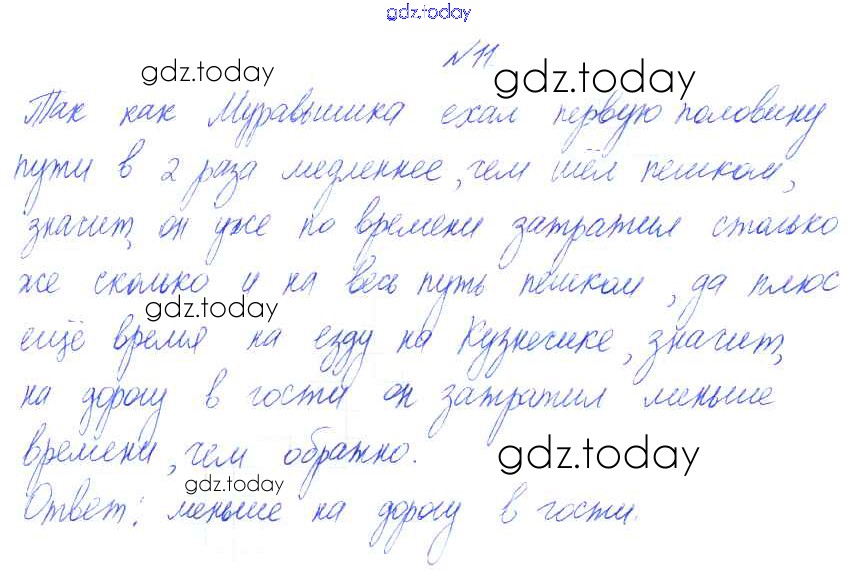 gdz.today
№11
gdz.today gdz.today
Так как Муравьишка ехал первую половину
пути в 2 раза медленнее, чем шёл пешком,
значит, он уже по времени затратил столько
же сколько и на весь путь пешком, да плюс
gdz.today
ещё время на езду на Кузнечике, значит,
на дорогу в гости он затратил меньше
времени, чем обратно.
gdz.today
gdz.today
Ответ: меньше на дорогу в гости.